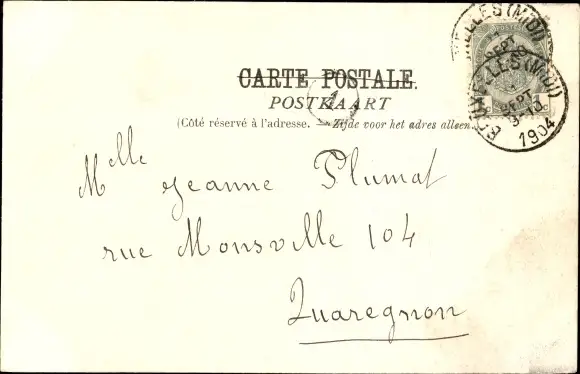 CARTE POSTALE.
POSTKAART
(Côté réservé à l'adresse. — Zijde voor het adres alleen.)
BRUXELLES (MIDI)
SEPT
1904
1
Mlle Jeanne Plumat
rue Monsville 104
Quaregnon